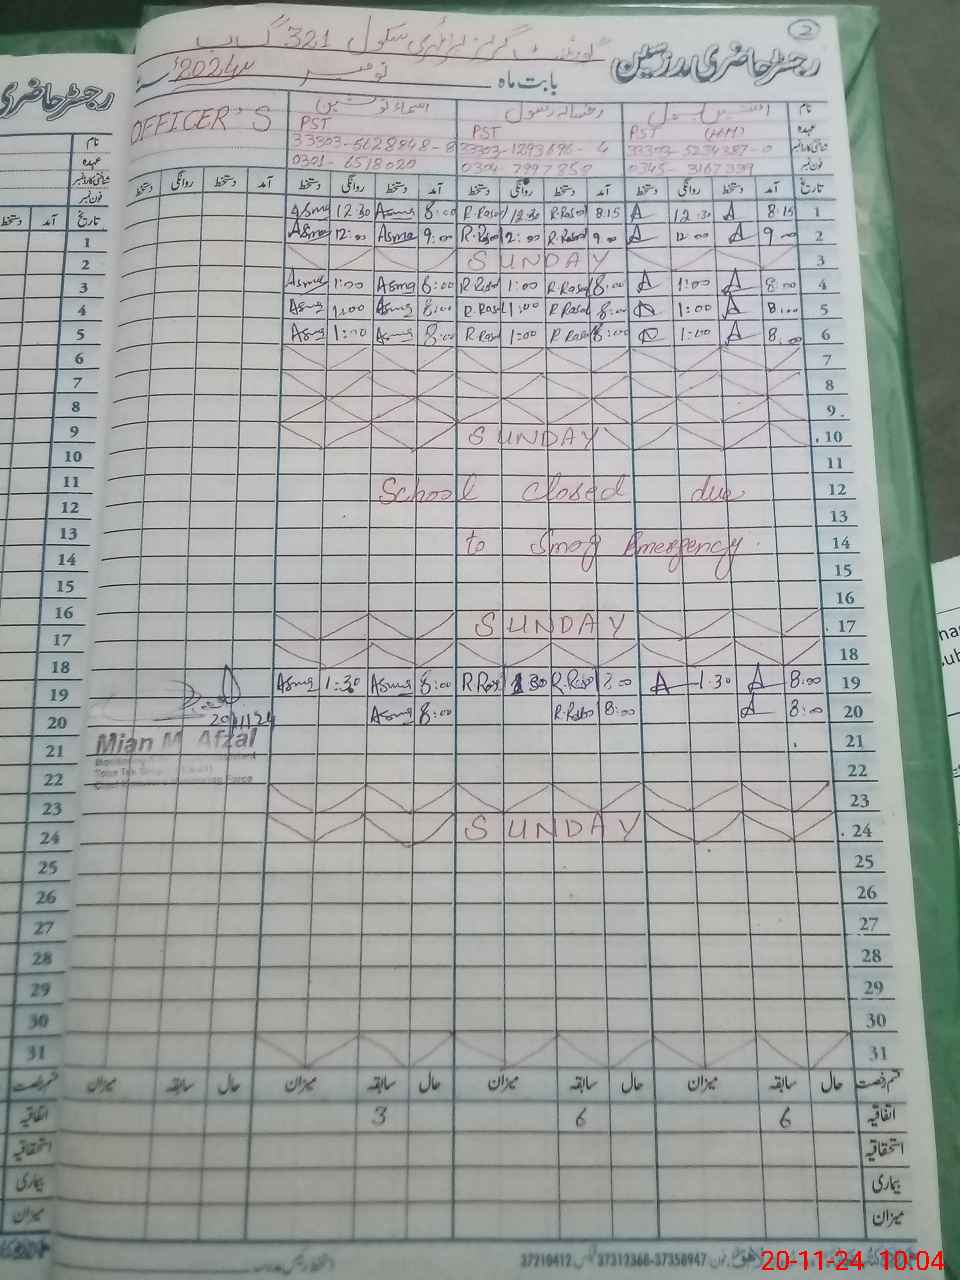 2
گورنمنٹ گرلز پرائمری سکول 321 گ ب
رجسٹر حاضری مدرسین
بابت ماہ نومبر 2024ء
نام رخسانہ رسول OFFICER'S
عہدہ PST (HM) PST PST
شناختی کارڈ نمبر 33303-5234387-0 33303-1293696-4 33303-5628848-8
فون نمبر 0345-3167339 0304-7997850 0301-6518020
تاریخ آمد دستخط روانگی دستخط آمد دستخط روانگی دستخط آمد دستخط روانگی دستخط آمد دستخط روانگی دستخط
1 8:15 A 12:30 A 8:15 R.Rasol 12:30 R.Rasol 8:00 Asma 12:30 Asma
2 9:00 A 12:00 A 9:00 R.Rasol 12:00 R.Rasol 9:00 Asma 12:00 Asma
3 SUNDAY
4 8:00 A 1:00 A 8:00 R.Rasol 1:00 R.Rasol 8:00 Asma 1:00 Asma
5 8:00 A 1:00 A 8:00 R.Rasol 1:00 R.Rasol 8:00 Asma 1:00 Asma
6 8:00 A 1:00 A 8:00 R.Rasol 1:00 R.Rasol 8:00 Asma 1:00 Asma
7
8
9
10 SUNDAY
11
12 School closed due
13
14 to Smog Emergency.
15
16
17 SUNDAY
18
19 8:00 A 1:30 A 8:00 R.Rasol 1:30 R.Rasol 8:00 Asma 1:30 Asma
20 8:00 A 8:00 R.Rasol 8:00 Asma
20/11/24
Mian M Afzal
21
22
23
24 SUNDAY
25
26
27
28
29
30
31
قسم رخصت حال سابقہ میزان حال سابقہ میزان حال سابقہ میزان حال سابقہ میزان
اتفاقیہ 6 6 3
استحقاقیہ
بیماری
میزان
37210412 37312368-37358947
رجسٹر حاضری
نام
عہدہ
شناختی کارڈ نمبر
فون نمبر
تاریخ آمد دستخط
1
2
3
4
5
6
7
8
9
10
11
12
13
14
15
16
17
18
19
20
21
22
23
24
25
26
27
28
29
30
31
قسم رخصت
اتفاقیہ
استحقاقیہ
بیماری
میزان
20-11-24 10:04